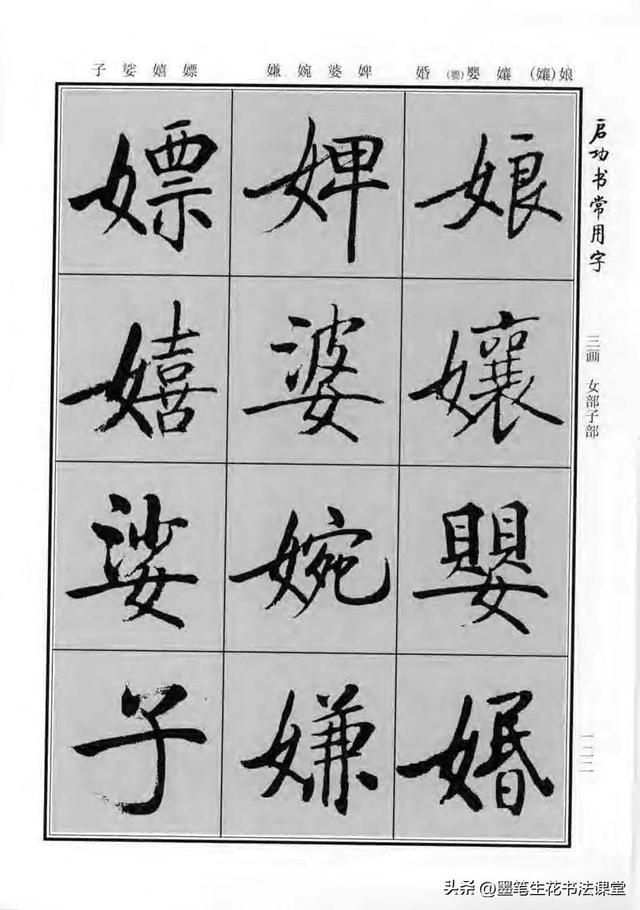 娘(孃) 孃 嬰(嬰) 婚 婢 婆 婉 嫌 嫖 嬉 娑 子
启功书常用字
三画 女部子部
一二二
娘孃嬰婚
婢婆婉嫌
嫖嬉娑子
头条 @墨笔生花书法课堂